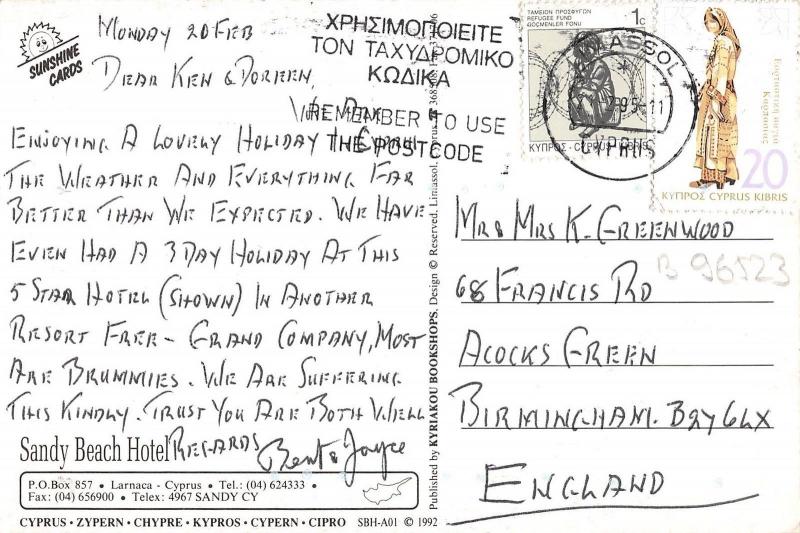 SUNSHINE
CARDS
MONDAY 20 FEB
DEAR KEN & DOREEN,
ENJOYING A LOVELY HOLIDAY IN CYPRUS
THE WEATHER AND EVERYTHING FAR
BETTER THAN WE EXPECTED. WE HAVE
EVEN HAD A 3 DAY HOLIDAY AT THIS
5 STAR HOTEL (SHOWN) IN ANOTHER
RESORT FREE - GRAND COMPANY, MOST
ARE BRUMMIES. WE ARE SUFFERING
THIS KINDLY. TRUST YOU ARE BOTH WELL
REGARDS
& Joyce
Sandy Beach Hotel
P.O.Box 857 • Larnaca - Cyprus • Tel.: (04) 624333 •
Fax: (04) 656900 • Telex: 4967 SANDY CY
CYPRUS • ZYPERN • CHYPRE • KYPROS • CYPERN • CIPRO SBH-A01 © 1992
Published by KYRIAKOU BOOKSHOPS. Design © Reserved. Limassol, Cyprus
ΧΡΗΣΙΜΟΠΟΙΕΙΤΕ
ΤΟΝ ΤΑΧΥΔΡΟΜΙΚΟ
ΚΩΔΙΚΑ
REMEMBER TO USE
THE POSTCODE
ΤΑΜΕΙΟΝ ΠΡΟΣΦΥΓΩΝ
REFUGEE FUND
GÖÇMENLER FONU
1c
ΚΥΠΡΟΣ - CYPRUS - KIBRIS
LIMASSOL
CYPRUS
20
ΚΥΠΡΟΣ CYPRUS KIBRIS
MR & MRS K. GREENWOOD
68 FRANCIS RD
ACOCKS GREEN
BIRMINGHAM. B27 6LX
ENGLAND
B 96523